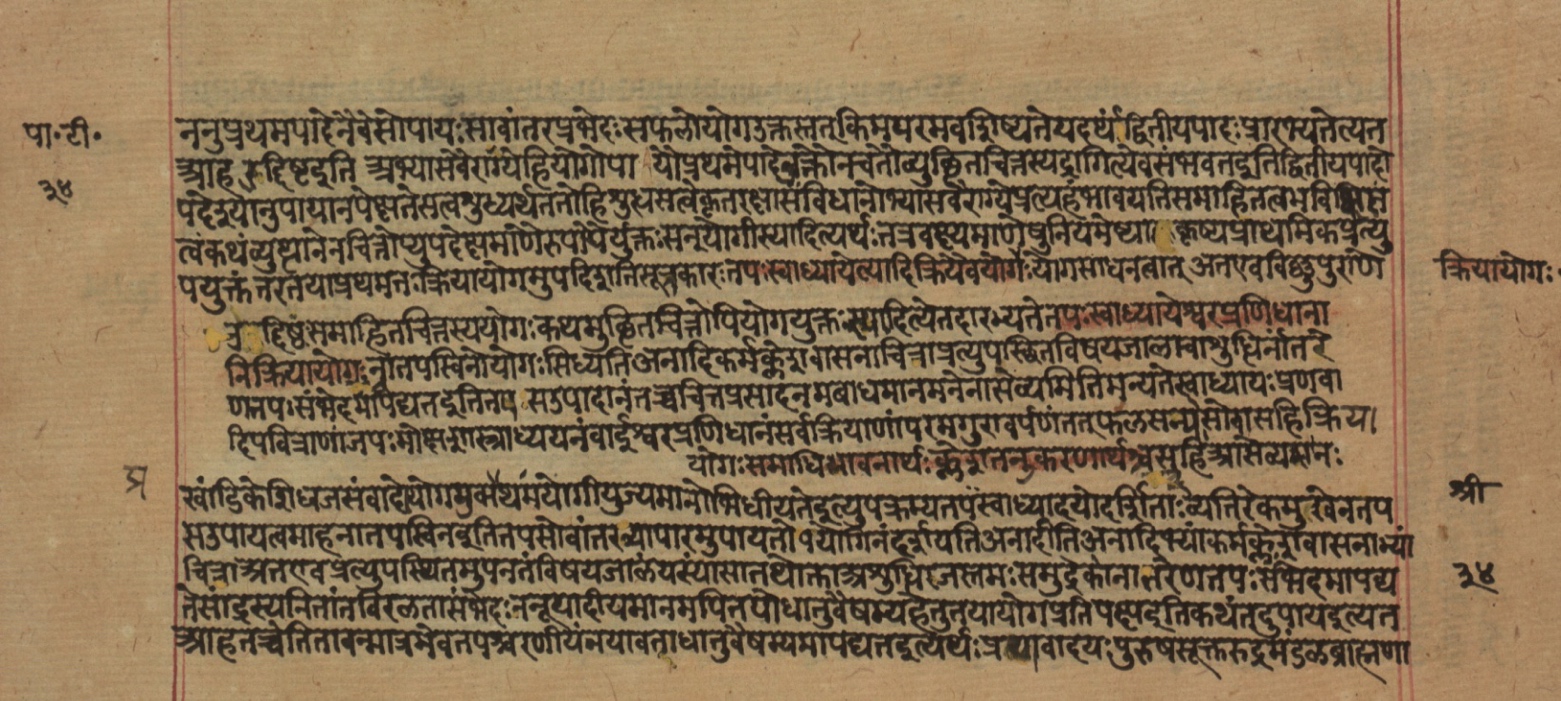 पा॰टी॰
३४
ननुप्रथमपादेनैवसोपायःसावांतरप्रभेदःसफलोयोगउक्तस्तत्किमपरमवशिष्यतेयदर्थंद्वितीयपादःप्रारभ्यतेत्यत
आहउद्दिष्टइति अभ्यासवैराग्येहियोगोपा यौप्रथमेपादेउक्तौनचतौव्युछितचित्तस्यद्रागित्येवसंभवतइतिद्वितीयपादो
पदेश्यानुपायानपेक्षतेसत्वशुध्यर्थंततोहिशुद्धसत्वःकृतरक्षासंविधानोभ्यासवैराग्येप्रत्यहंभावयतिसमाहितत्वमविक्षिप्त
त्वंकथंव्युछानेनचित्तोप्युपदेक्ष्यमाणैरुपायैर्युक्तःसन्योगीस्यादित्यर्थःतत्रवक्ष्यमाणेषुनियमेष्वा कृष्यप्राथमिकंप्रत्यु
पयुक्तंतरतयाप्रथमतःक्रियायोगमुपदिशतिसूत्रकारःतपःस्वाध्यायेत्यादिक्रियैवयोगःयोगसाधनत्वात् अतएवविष्णुपुराणे
क्रियायोगः
उद्दिष्टःसमाहितचित्तस्ययोगःकथमुछितचित्तोपियोगयुक्तःस्यादित्येतदारभ्यतेतपःस्वाध्यायेश्वरप्रणिधाना
निक्रियायोगःनातपस्विनोयोगःसिध्यतिअनादिकर्मक्लेशवासनाचित्राप्रत्युपस्थितविषयजालाचाशुद्धिर्नांतरे
णतपःसंभेदमापद्यतइतितप सउपादानंतच्चचित्तप्रसादनमबाधमानमनेनासेव्यमितिमन्यतेस्वाध्यायःप्रणवा
दिपवित्राणांजपःमोक्षशास्त्राध्ययनंवाईश्वरप्रणिधानंसर्वक्रियाणांपरमगुरावर्पणंतत्फलसन्यासोवासहिक्रिया
योगःसमाधिभावनार्थःक्लेशतनूकरणार्थश्चसहिआसेव्यमानः
खांडिकेशिध्वजसंवादेयोगयुक्प्रथमंयोगीयुज्यमानोभिधीयतेइत्युपक्रम्यतपःस्वाध्यादयोदर्शिताःव्यतिरेकमुखेनतप
श्री
सउपायत्वमाहनातपस्विनइतितपसोवांतरव्यापारमुपायतोपयोगिनंदर्शयतिअनादीतिअनादिभ्यांकर्मक्लेशवासनाभ्यां
चित्राअतएवप्रत्युपस्थितमुपनतंविषयजालंयस्यांसातथोक्ताअशुद्धिःरजस्तमःसमुद्रेकोनांतरेणतपःसंभेदमापद्य
३४
तेसांद्रस्यनितांतविरलतासंभेदःनन्वुपादीयमानमपितपोधातुवैषम्यहेतुतयायोगप्रतिपक्षइतिकथंतदुपायइत्यत
आहतच्चेतितावन्मात्रमेवतपश्चरणीयंनयावताधातुवैषम्यमापद्यतइत्यर्थःप्रणवादयःपुरुषसूक्तरुद्रमंडलब्राह्मणा